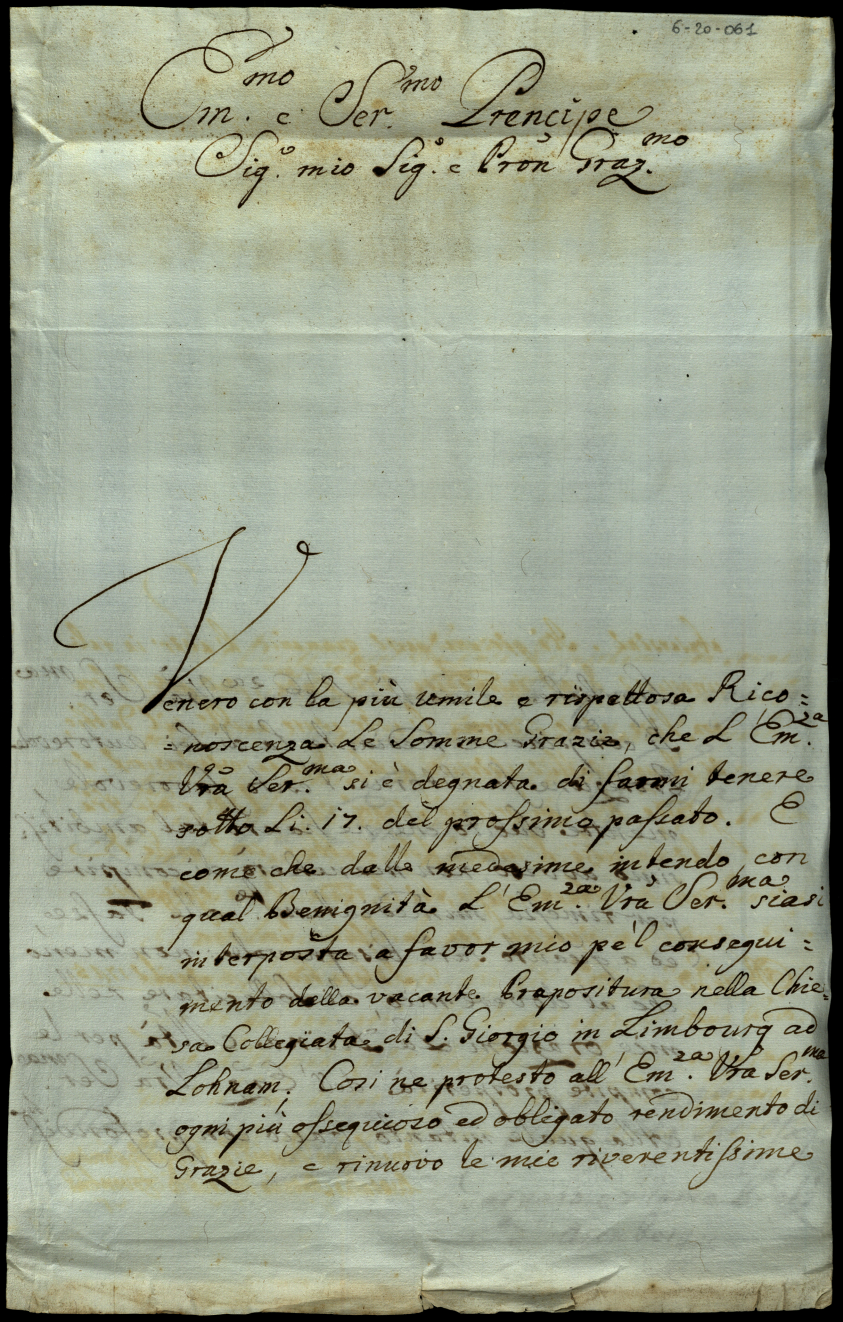 6-20-061
Em.mo e Ser.mo Prencipe
Sig.o mio Sig.o e Pron Graz.mo
Venero con la più umile e rispettosa Rico=
=noscenza Le Somme Grazie, che L'Em.za
Vra Ser.ma si è degnata di farmi tenere
sotto Li. 17. del prossimo passato. E
come che dalle medesime intendo, con
qual Benignità L'Em.za Vra Ser.ma siasi
interposta a favor mio pel consegui=
mento della vacante Prapositura nella Chie=
sa Collegiata di S. Giorgio in Limbourg ad
Lohnam; Cosi ne protesto all'Em.za Vra Ser.ma
ogni più ossequioso ed obligato rendimento di
Grazie, e rinuovo le mie riverentissime